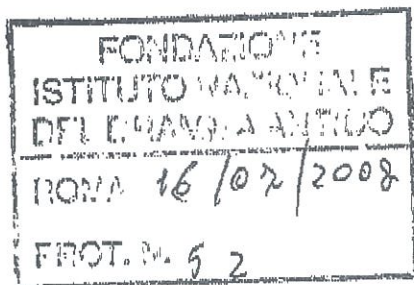 FONDAZIONE
ISTITUTO NAZIONALE
DEL DRAMMA ANTICO
ROMA 16/07/2008
PROT. N. 52